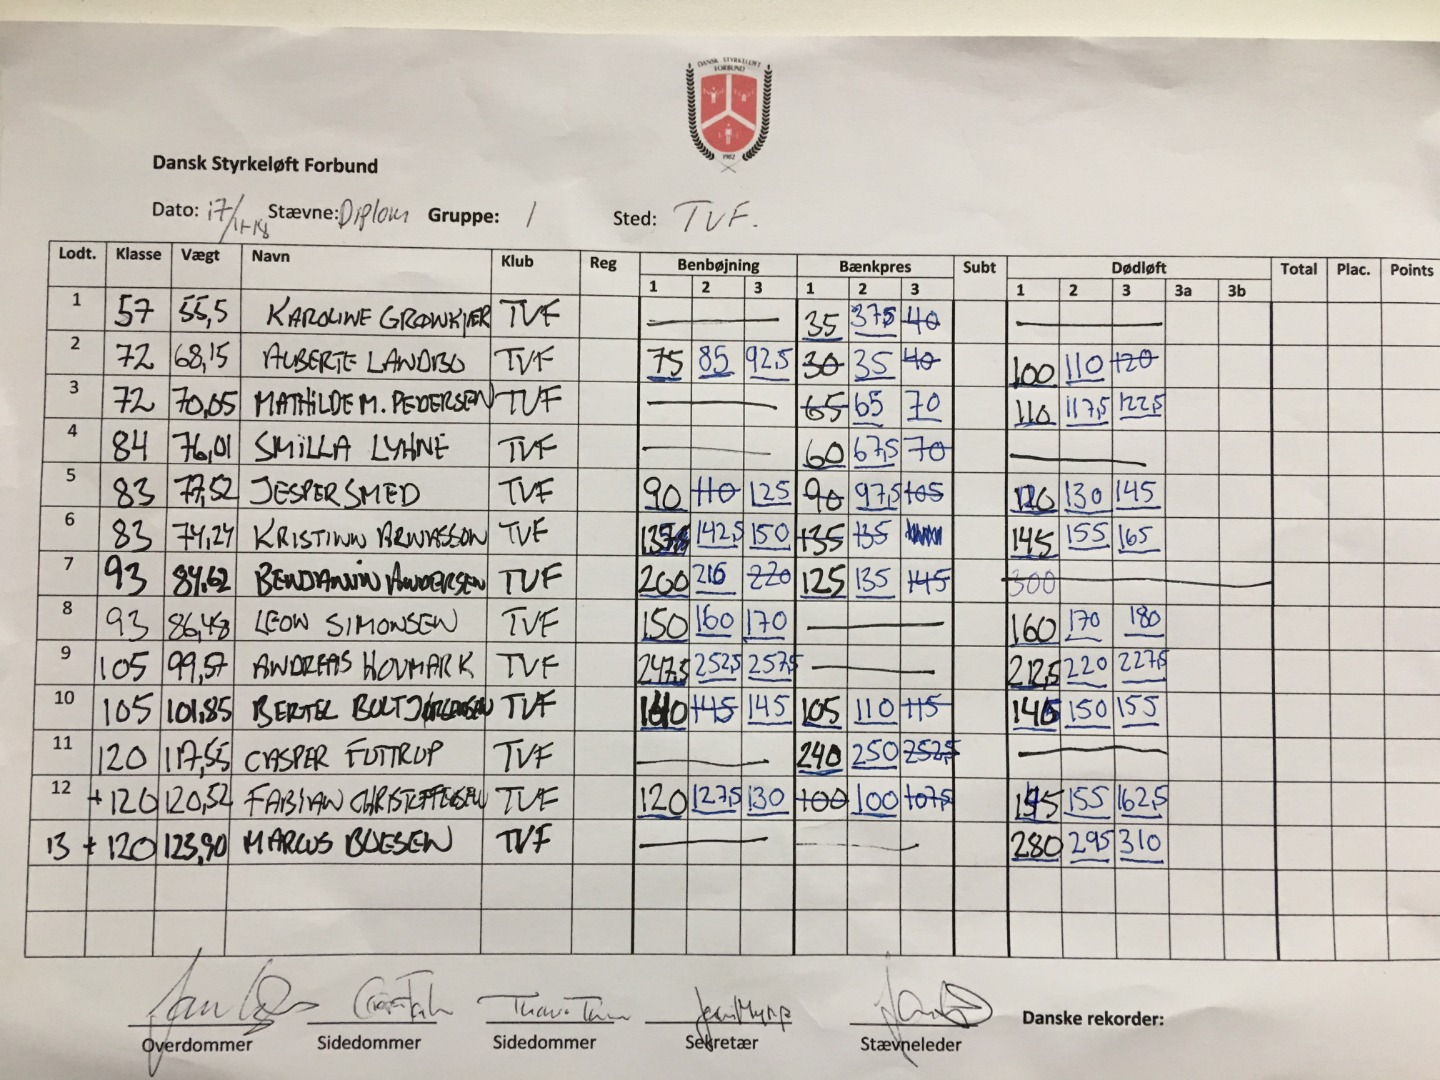 DANSK STYRKELØFT
FORBUND
1982
Dansk Styrkeløft Forbund
Dato: 17/11-18 Stævne: Diplom Gruppe: 1 Sted: TVF.
Lodt. Klasse Vægt Navn Klub Reg Benbøjning Bænkpres Subt Dødløft Total Plac. Points
1 2 3 1 2 3 1 2 3 3a 3b
1 57 55,5 KAROLINE GROONKJER TVF 35 37,5 40
2 72 68,15 ALBERTE LANDBO TVF 75 85 92,5 30 35 40 100 110 120
3 72 70,05 MATHILDE M. PEDERSEN TVF 65 65 70 110 117,5 122,5
4 84 76,01 SMILLA LYHNE TVF 60 67,5 70
5 83 77,52 JESPER SMED TVF 90 110 125 90 97,5 105 120 130 145
6 83 74,24 KRISTINN ARNASSON TVF 142,5 150 135 135 145 155 165
7 93 84,62 BENJAMIN ANDERSEN TVF 200 216 220 125 135 145 300
8 93 86,48 LEON SIMONSEN TVF 150 160 170 160 170 180
9 105 99,57 ANDREAS HOVMARK TVF 247,5 252,5 257,5 212,5 220 227,5
10 105 101,85 BERTEL BULT JØRGENSEN TVF 140 145 145 105 110 115 145 150 155
11 120 117,55 CASPER FUTTRUP TVF 240 250 252,5
12 +120 120,52 FABIAN CHRISTOFFERSEN TVF 120 127,5 130 100 100 107,5 145 155 162,5
13 +120 123,90 MARCUS BOESEN TVF 280 295 310
Overdommer Sidedommer Sidedommer Sekretær Stævneleder Danske rekorder: